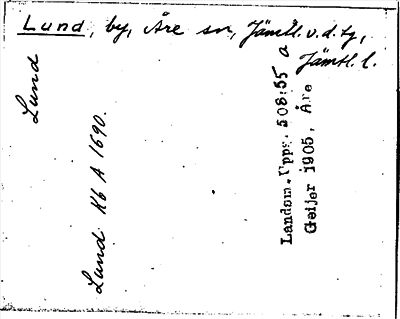 Lund, by, Åre sn, Jämtl. v. d. tg,
Jämtl. l.
Lund
Lund Kb A 1690.
Landsm. Upps. 508:55 a
Geijer 1905, Åre